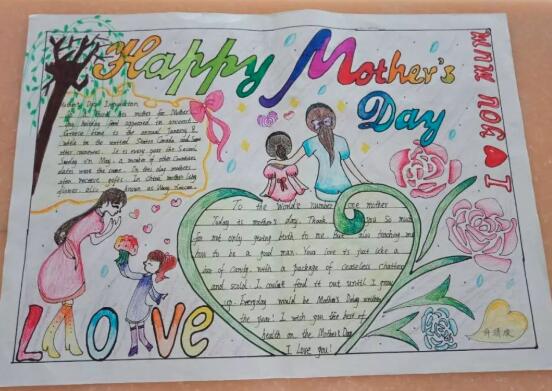 Happy Mother's Day
I ♥ YOU MUM
Mother's Day
is to thank his mother for Mother's
Day holiday first appeared in ancient
Greece time is the annual January 8
while in the United States Canada and some
other countries. It is every year the Second
Sunday on May a number of other Countries
dates were the same. In this day mothers
often receive gifts
flower also known as
To the World's number one mother
Today is mother's day. Thank you so much
for not only giving birth to me but also teaching me
how to be a good man. Your love is just like a
of candy with a package of ceaseless chatters
and scold. I could find it out until I grow
up. Everyday would be Mother's Day
the year! I wish you the best of
health on the Mother's Day
I Love you!
LOVE